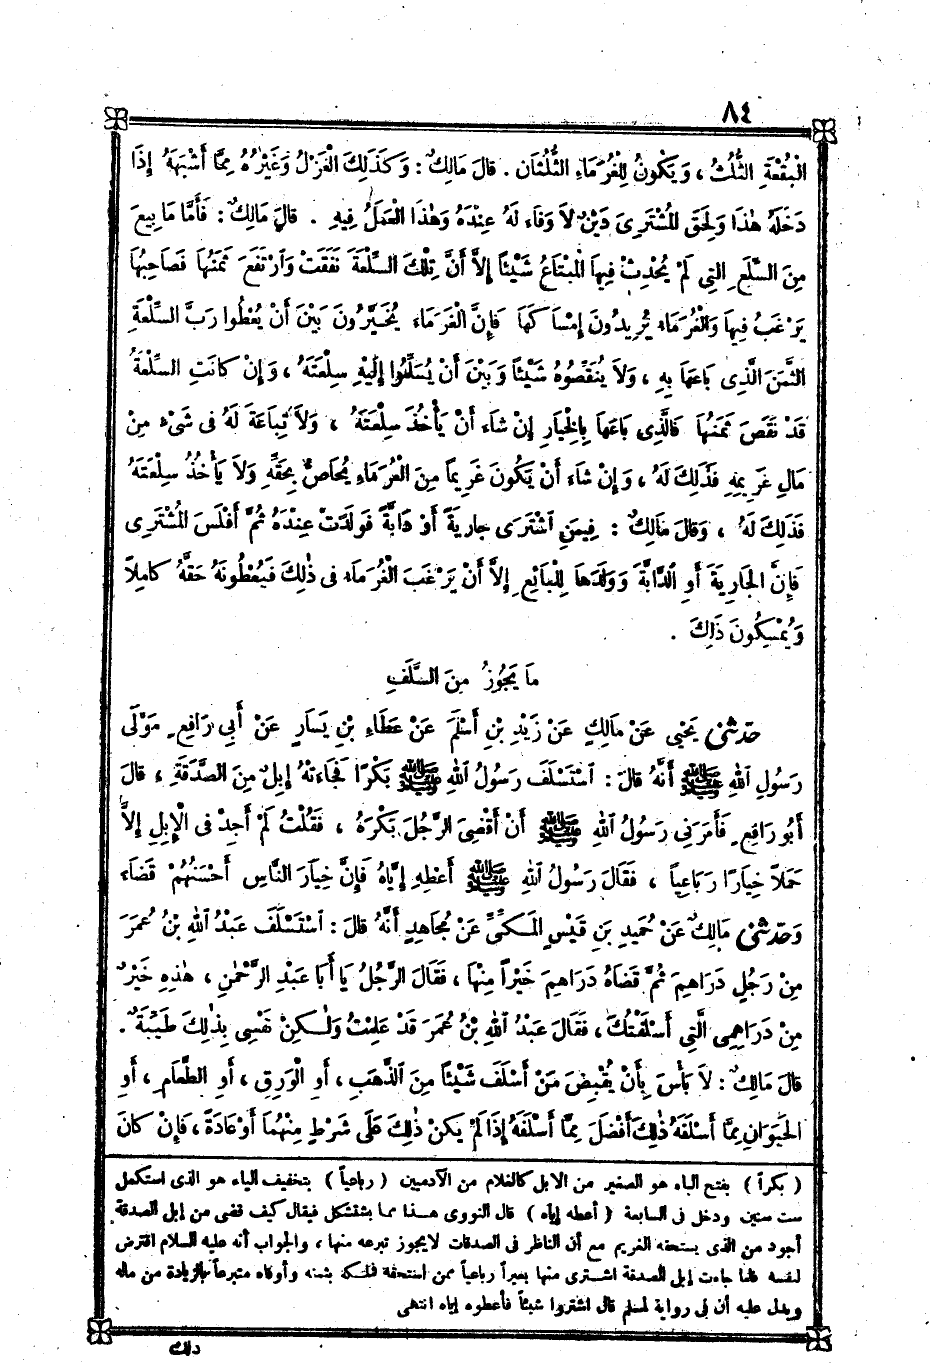 ٨٤
الْبُقْعَةِ الثُّلُثُ ، وَيَكُونُ لِلْغُرَمَاءِ الثُّلُثَانِ . قَالَ مَالِكٌ : وَكَذَلِكَ الْغَزْلُ وَغَيْرُهُ مِمَّا أَشْبَهَهُ إِذَا
دَخَلَهُ هٰذَا وَلَحِقَ الْمُشْتَرِىَ دَيْنٌ لاَ وَفَاء لَهُ عِنْدَهُ وَهٰذَا الْعَمَلُ فِيهِ . قَالَ مَالِكٌ : فَأَمَّا مَا بِيعَ
مِنَ السِّلَعِ التِي لَمْ يُحْدِثْ فِيهَا الْمُبْتَاعُ شَيْئًا إِلاَّ أَنَّ تِلْكَ السِّلْعَةَ نَفَقَتْ وَارْتَفَعَ ثَمَنُهَا فَصَاحِبُهَا
يَرْغَبُ فِيهَا وَالْغُرَمَاءُ يُرِيدُونَ إِمْسَاكَهَا فَإِنَّ الْغُرَمَاءَ يُخَيَّرُونَ بَيْنَ أَنْ يُعْطُوا رَبَّ السِّلْعَةِ
الثَّمَنَ الَّذِى بَاعَهَا بِهِ ، وَلاَ يُنَقِّصُوهُ شَيْئًا وَبَيْنَ أَنْ يُسَلِّمُوا إِلَيْهِ سِلْعَتَهُ ، وَإِنْ كَانَتِ السِّلْعَةُ
قَدْ نَقَصَ ثَمَنُهَا فَالَّذِى بَاعَهَا بِالْخِيَارِ إِنْ شَاءَ أَنْ يَأْخُذَ سِلْعَتَهُ ، وَلاَ تِبَاعَةَ لَهُ فِى شَىْءٍ مِنْ
مَالِ غَرِيمِهِ فَذَلِكَ لَهُ ، وَإِنْ شَاءَ أَنْ يَكُونَ غَرِيماً مِنَ الْغُرَمَاءِ يُحَاصُّ بِحَقِّهِ وَلاَ يَأْخُذُ سِلْعَتَهُ
فَذَلِكَ لَهُ ، وَقَالَ مَالِكٌ : فِيمَنِ اشْتَرَى جَارِيَةً أَوْ دَابَّةً فَوَلَدَتْ عِنْدَهُ ثُمَّ أَفْلَسَ الْمُشْتَرِى
فَإِنَّ الْجَارِيَةَ أَوِ الدَّابَّةَ وَوَلَدَهَا لِلْبَائِعِ إِلاَّ أَنْ يَرْغَبَ الْغُرَمَاءُ فِى ذٰلِكَ فَيُعْطُونَهُ حَقَّهُ كَامِلاً
وَيُمْسِكُونَ ذَلِكَ .
مَا يَجُوزُ مِنَ السَّلَفِ
حَدَّثَنِى يَحْيٰى عَنْ مَالِكٍ عَنْ زَيْدِ بْنِ أَسْلَمَ عَنْ عَطَاءِ بْنِ يَسَارٍ عَنْ أَبِى رَافِعٍ مَوْلَى
رَسُولِ اللهِ ﷺ أَنَّهُ قَالَ : اسْتَسْلَفَ رَسُولُ اللهِ ﷺ بَكْرًا فَجَاءَتْهُ إِبِلٌ مِنَ الصَّدَقَةِ ، قَالَ
أَبُو رَافِعٍ فَأَمَرَنِى رَسُولُ اللهِ ﷺ أَنْ أَقْضِىَ الرَّجُلَ بَكْرَهُ ، فَقُلْتُ لَمْ أَجِدْ فِى الْإِبِلِ إِلاَّ
جَمَلاً خِيَارًا رَبَاعِياً ، فَقَالَ رَسُولُ اللهِ ﷺ أَعْطِهِ إِيَّاهُ فَإِنَّ خِيَارَ النَّاسِ أَحْسَنُهُمْ قَضَاء
وَحَدَّثَنِى مَالِكٌ عَنْ حُمَيْدِ بنِ قَيْسٍ الْمَكِّىِّ عَنْ مُجَاهِدٍ أَنَّهُ قَالَ : اسْتَسْلَفَ عَبْدُ اللهِ بْنُ عُمَرَ
مِنْ رَجُلٍ دَرَاهِمَ ثُمَّ قَضَاهُ دَرَاهِمَ خَيْرًا مِنْهَا ، فَقَالَ الرَّجُلُ يَا أَبَا عَبْدِ الرَّحْمٰنِ ، هٰذِهِ خَيْرٌ
مِنْ دَرَاهِمِى الَّتِى أَسْلَفْتُكَ ، فَقَالَ عَبْدُ اللهِ بْنُ عُمَرَ قَدْ عَلِمْتُ وَلٰكِنْ نَفْسِى بِذٰلِكَ طَيِّبَةٌ .
قَالَ مَالِكٌ : لاَ بَأْسَ بِأَنْ يُقْبِضَ مَنْ أَسْلَفَ شَيْئًا مِنَ الذَّهَبِ ، أَوِ الْوَرِقِ ، أَوِ الطَّعَامِ ، أَوِ
الْحَيَوَانِ مِمَّا أَسْلَفَهُ ذٰلِكَ أَفْضَلَ مِمَّا أَسْلَفَهُ إِذَا لَمْ يَكُنْ ذٰلِكَ عَلَى شَرْطٍ مِنْهُمَا أَوْ عَادَةً ، فَإِنْ كَانَ
( بكراً ) بفتح الباء هو الصغير من الابل كالغلام من الآدميين ( رباعياً ) بتخفيف الياء هو الذى استكمل
ست سنين ودخل فى السابعة ( أعطه إياه ) قال النووى هذا مما يستشكل فيقال كيف قضى من إبل الصدقة
أجود من الذى يستحقه الغريم مع أن الناظر فى الصدقات لا يجوز تبرعه منها ، والجواب أنه عليه السلام اقترض
لنفسه فلما جاءت إبل الصدقة اشترى منها بعيراً رباعياً ممن استحقه فملكه بثمنه وأوفاه متبرعاً بالزيادة من ماله
ويدل عليه أن فى رواية لمسلم قال اشتروا شيئاً فأعطوه إياه انتهى
ذلك